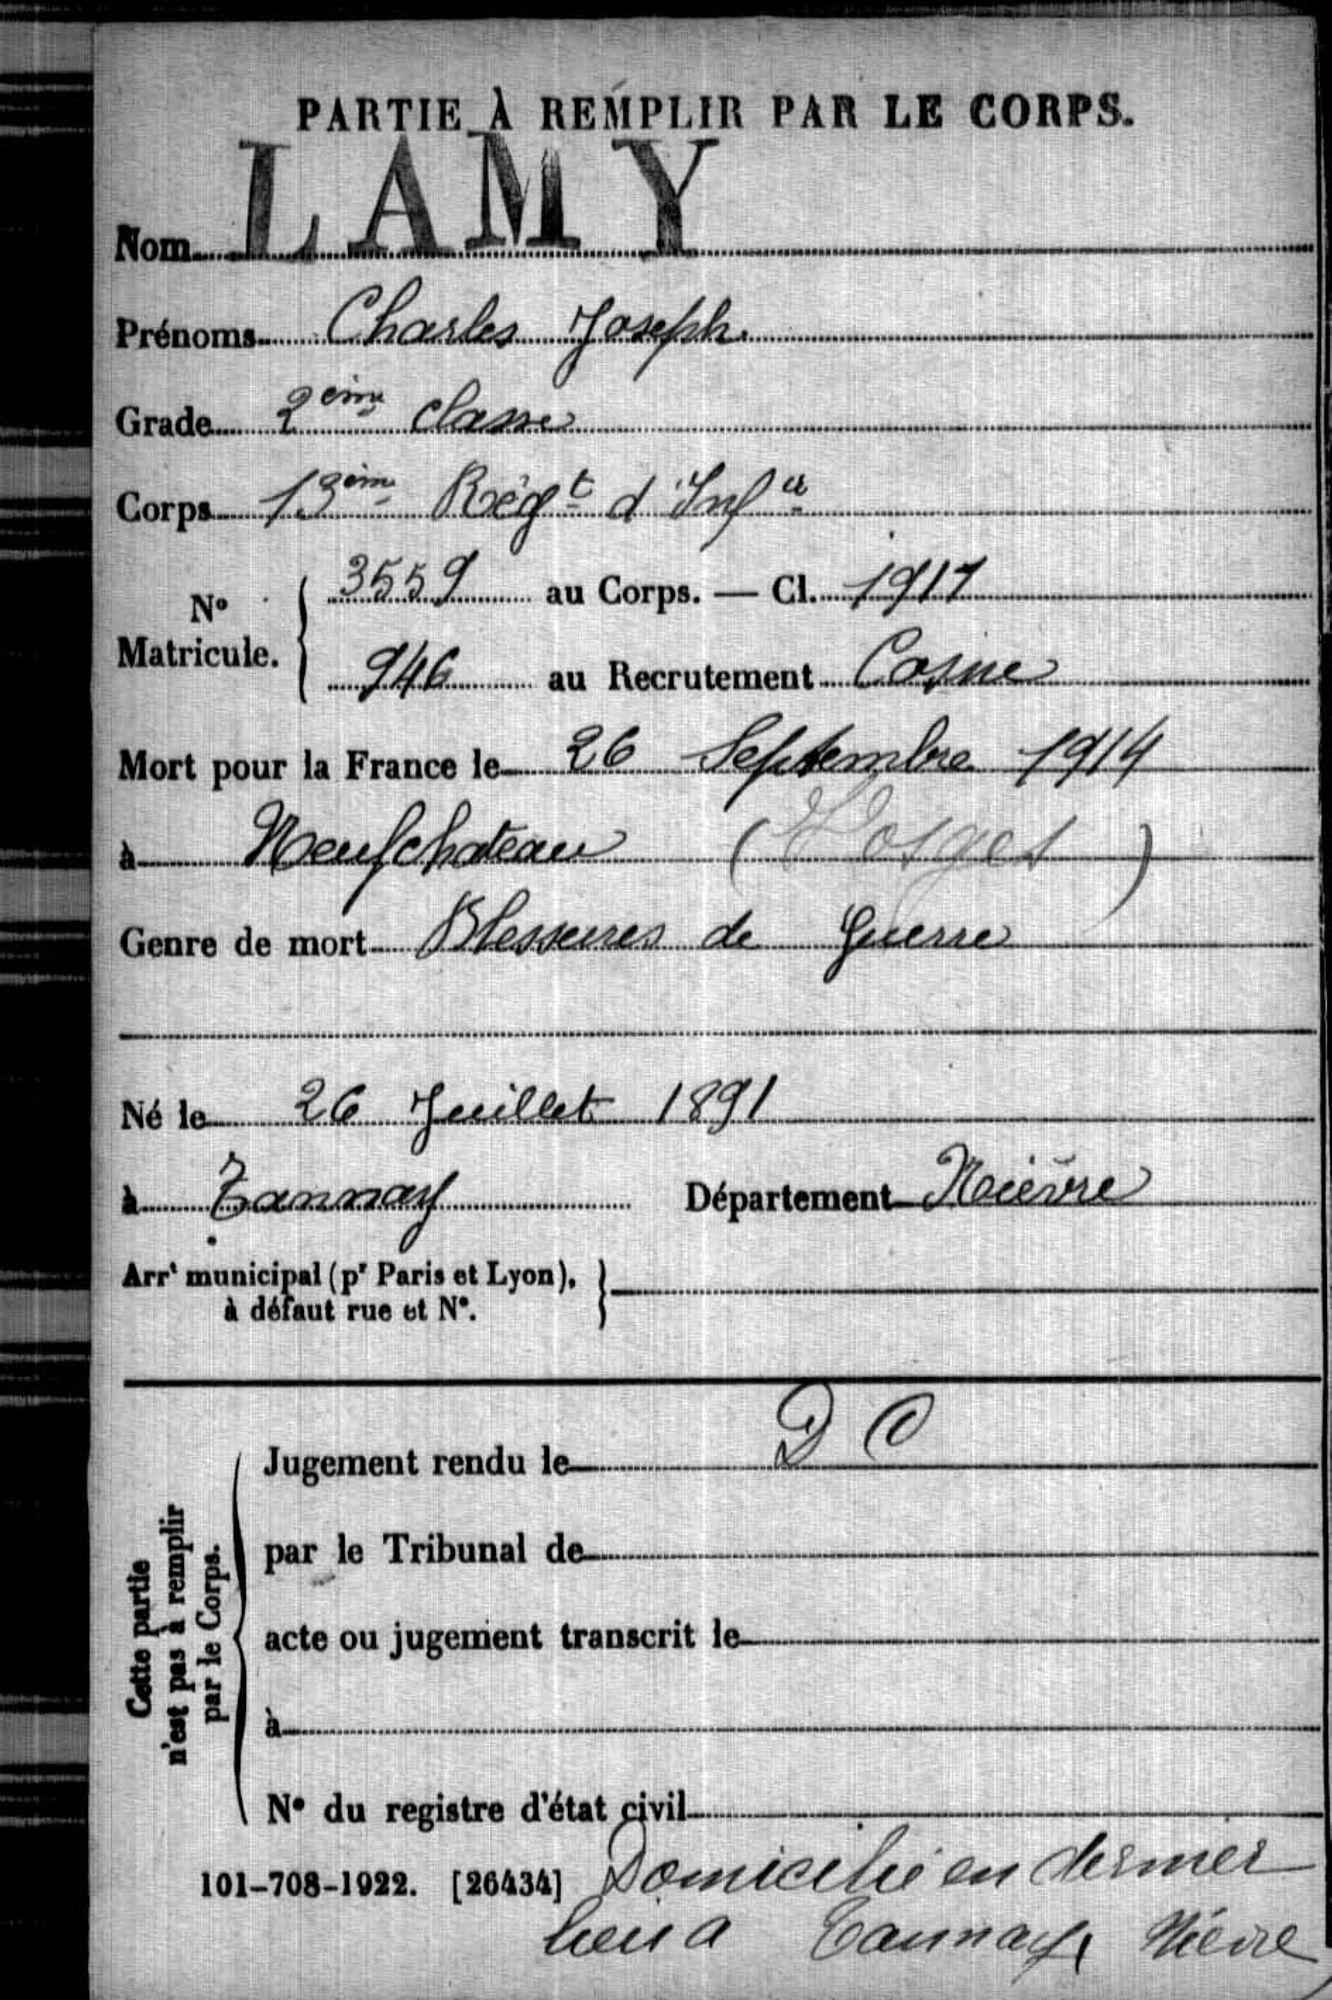 PARTIE À REMPLIR PAR LE CORPS.
Nom LAMY
Prénoms Charles Joseph
Grade 2ème classe
Corps 13ème Régt d'Infie
N° Matricule. 3559 au Corps. — Cl. 1911
946 au Recrutement Cosne
Mort pour la France le 26 Septembre 1914
à Neufchateau (Vosges)
Genre de mort Blessures de Guerre
Né le 26 Juillet 1891
à Tannay Département Nièvre
Arrt municipal (pr Paris et Lyon),
à défaut rue et N°.
Cette partie
n'est pas à remplir
par le Corps.
Jugement rendu le DC
par le Tribunal de
acte ou jugement transcrit le
à
N° du registre d'état civil
101-708-1922. [26434] Domicilié en dernier
lieu a Tannay, Nièvre